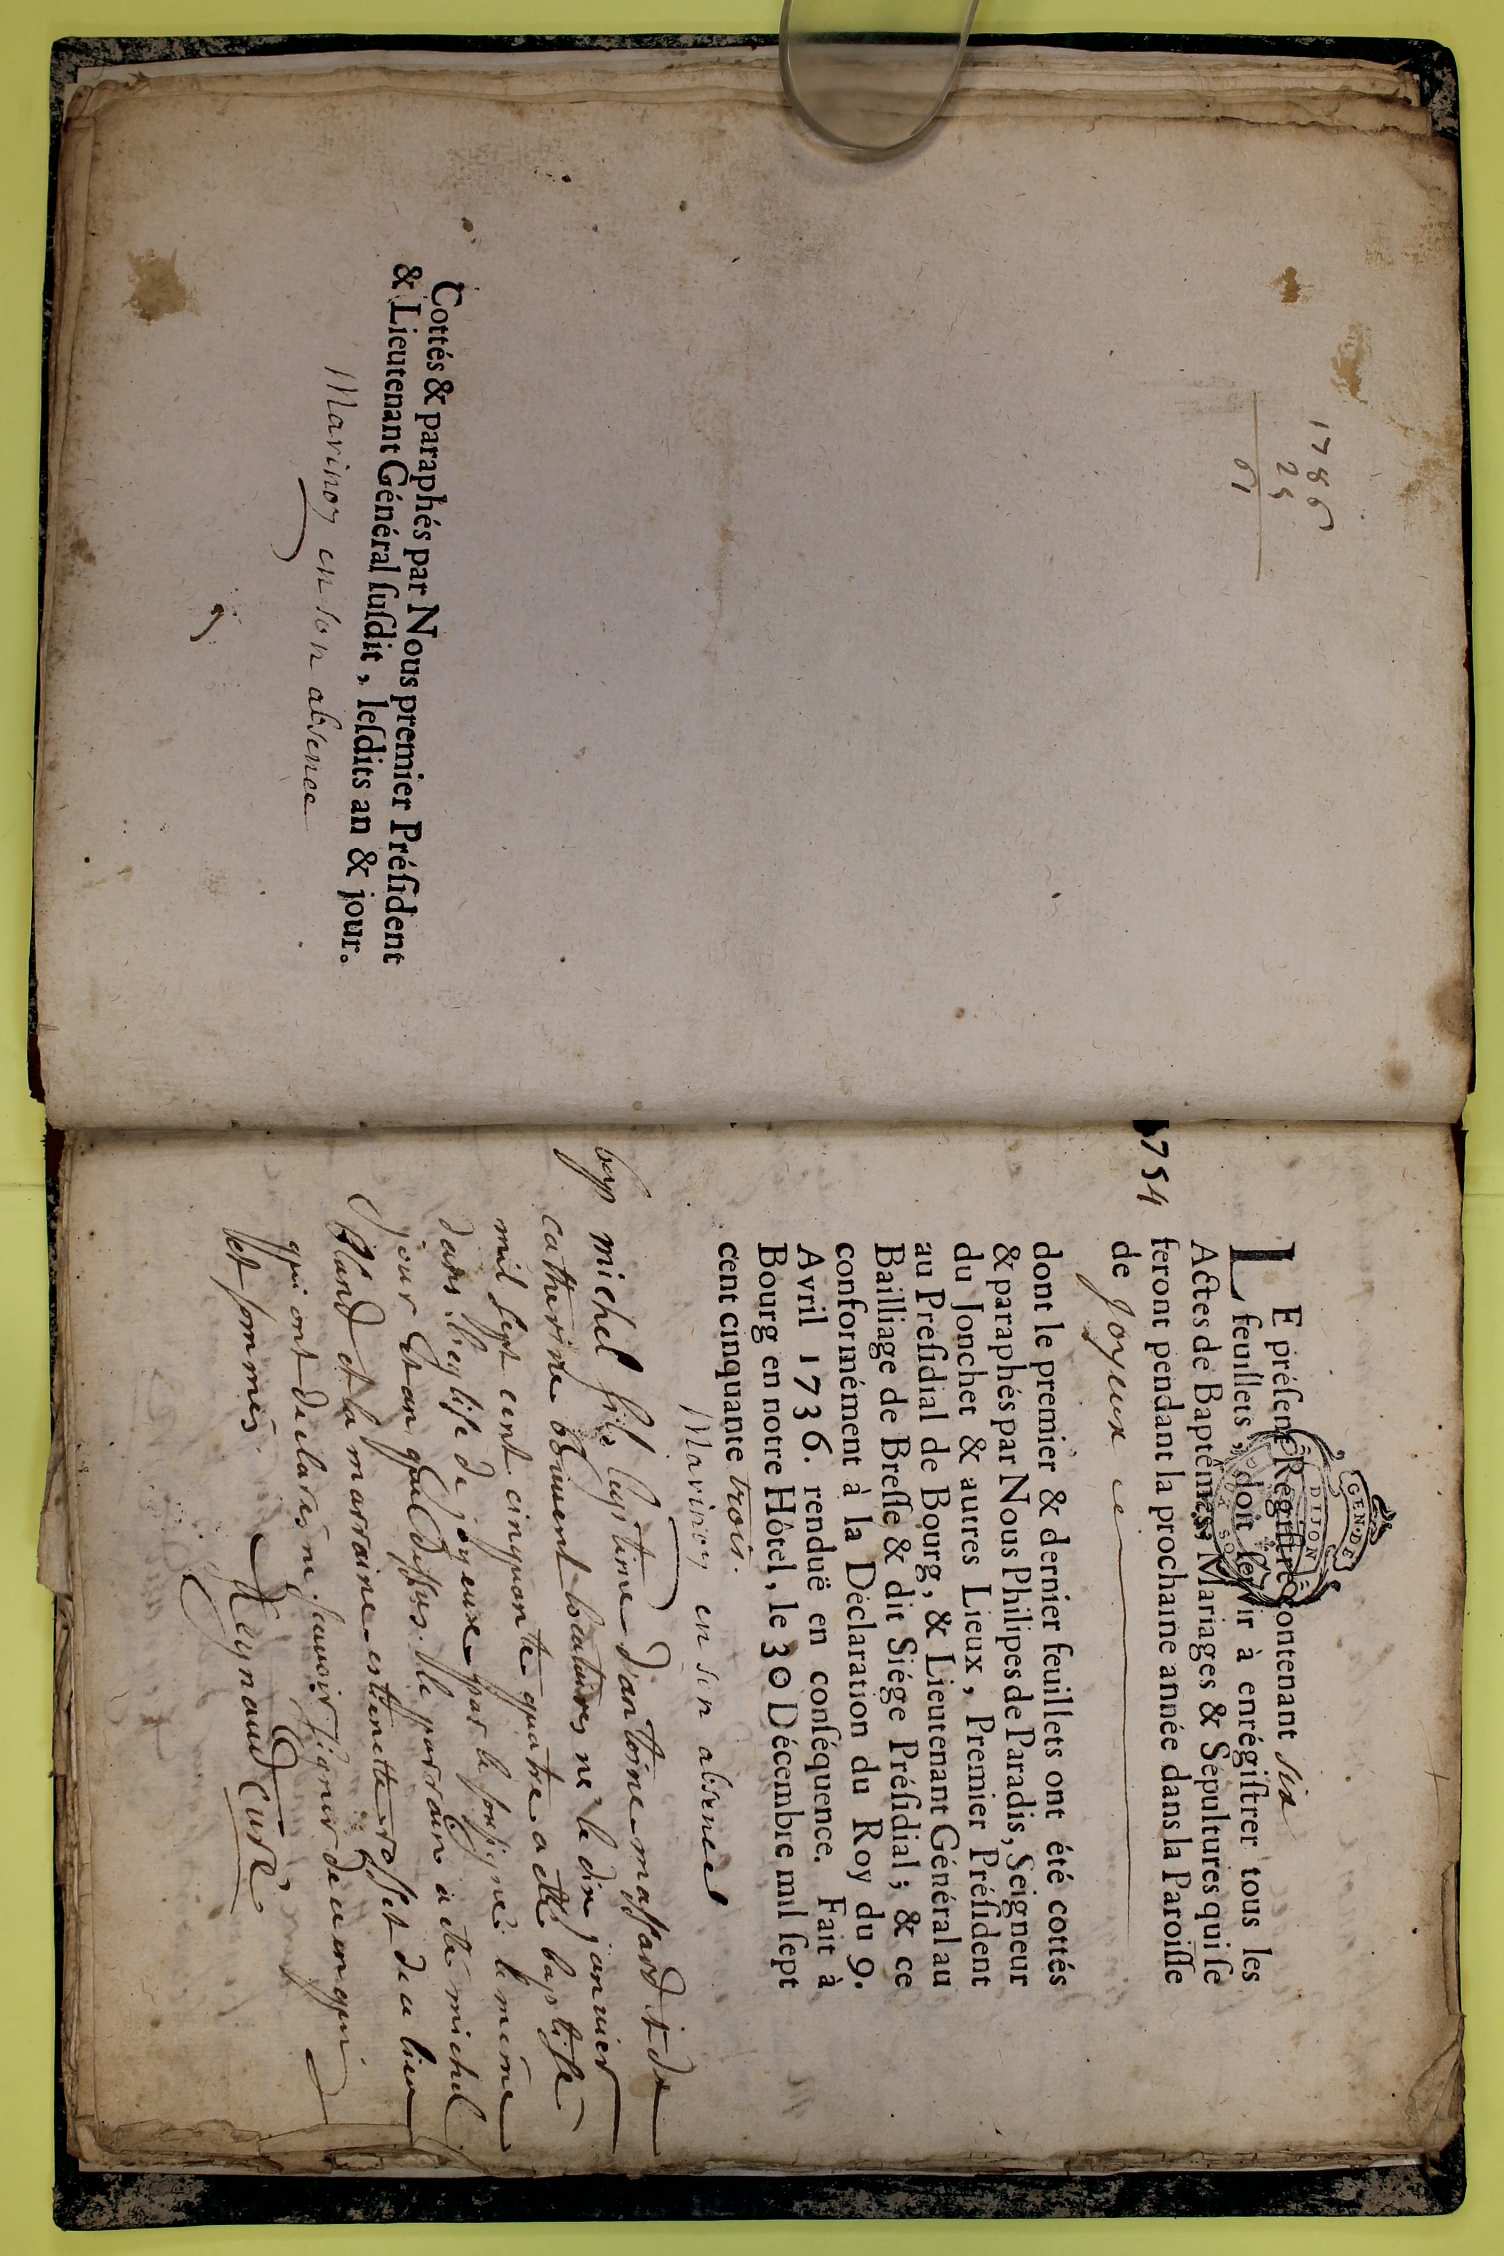 1786
25
61
Cottés & paraphés par Nous premier Préſident
& Lieutenant Général ſuſdit, leſdits an & jour.
Marinon en son absence
GEN·DE
DIJON
LE préſent Régiſtre contenant six
feuillets, doit ſervir à enrégiſtrer tous les
Actes de Baptêmes, Mariages & Sépultures qui ſe
1754 feront pendant la prochaine année dans la Paroiſſe
de Joyeux
dont le premier & dernier feuillets ont été cottés
& paraphés par Nous Philipes de Paradis, Seigneur
du Jonchet & autres Lieux, Premier Préſident
au Préſidial de Bourg, & Lieutenant Général au
Bailliage de Breſſe & dit Siége Préſidial; & ce
conformément à la Déclaration du Roy du 9.
Avril 1736. renduë en conſéquence. Fait à
Bourg en notre Hôtel, le 30 Décembre mil ſept
cent cinquante trois.
Marinon en son absence
bap michel fils legitime d'antoine massard et de
catherine né le dix janvier
mil sept cent cinquante quatre a etté baptisé
dans l'eglise de joyeux par le soussigné le meme
jour et an que dessus. le parrain a eté michel
et la marraine estienette rosset de ce lieu
qui ont declarés ne sçavoir signer de ce enquis
et sommés. Reynaud Curé